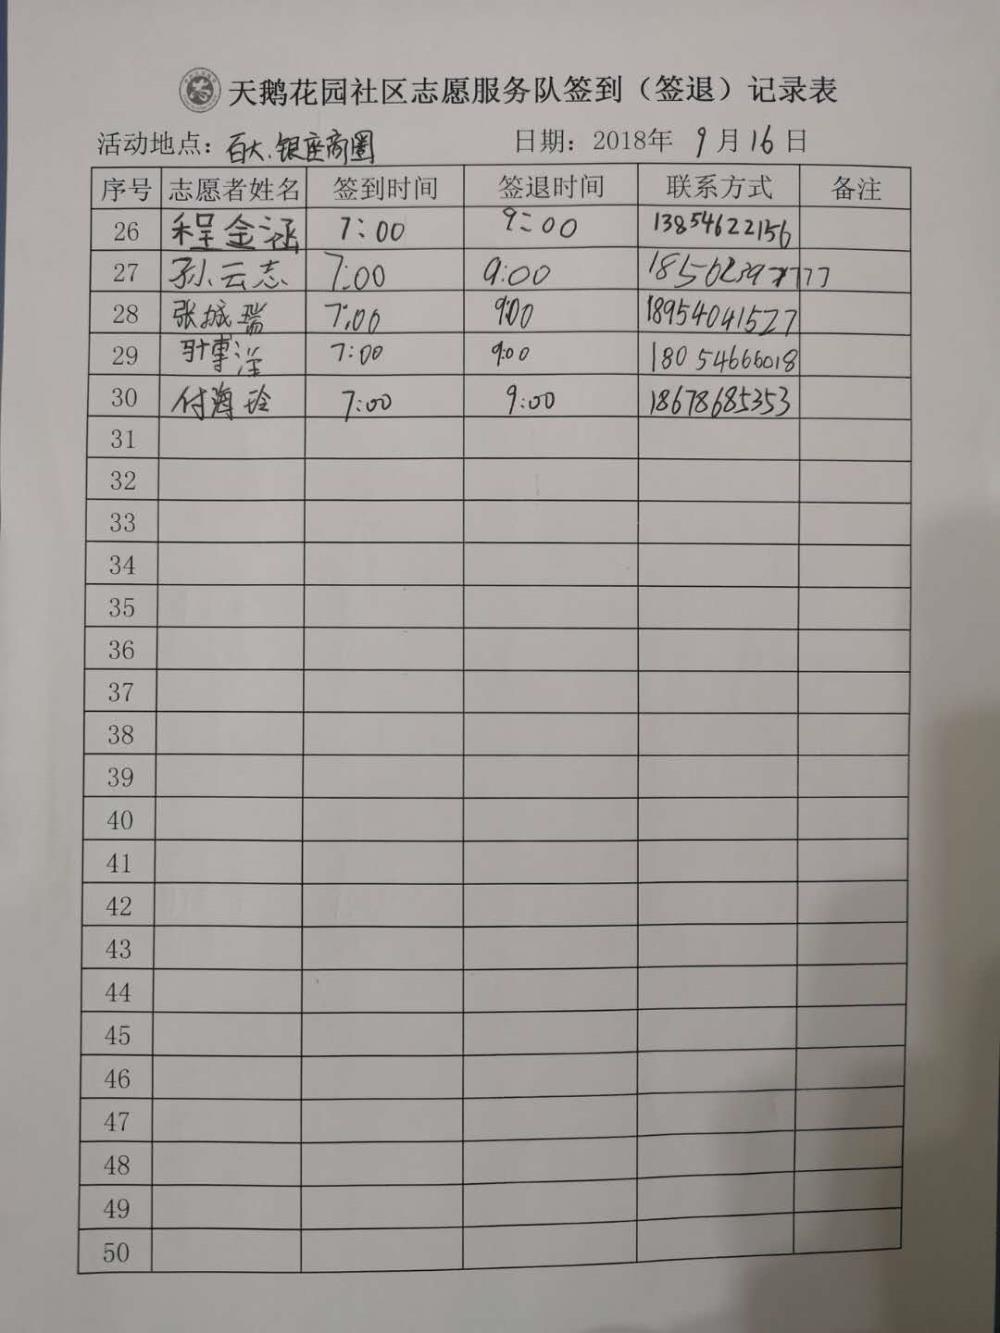 天鹅花园社区志愿服务队签到（签退）记录表
活动地点：百大.银座商圈 日期：2018年 9月16日
序号 志愿者姓名 签到时间 签退时间 联系方式 备注
26 程金涵 7:00 9:00 13854622156
27 孙云志 7:00 9:00
28 张城瑞 7:00 9:00 18954041527
29 7:00 9:00 18054666018
30 付海玲 7:00 9:00 18678685353
31
32
33
34
35
36
37
38
39
40
41
42
43
44
45
46
47
48
49
50